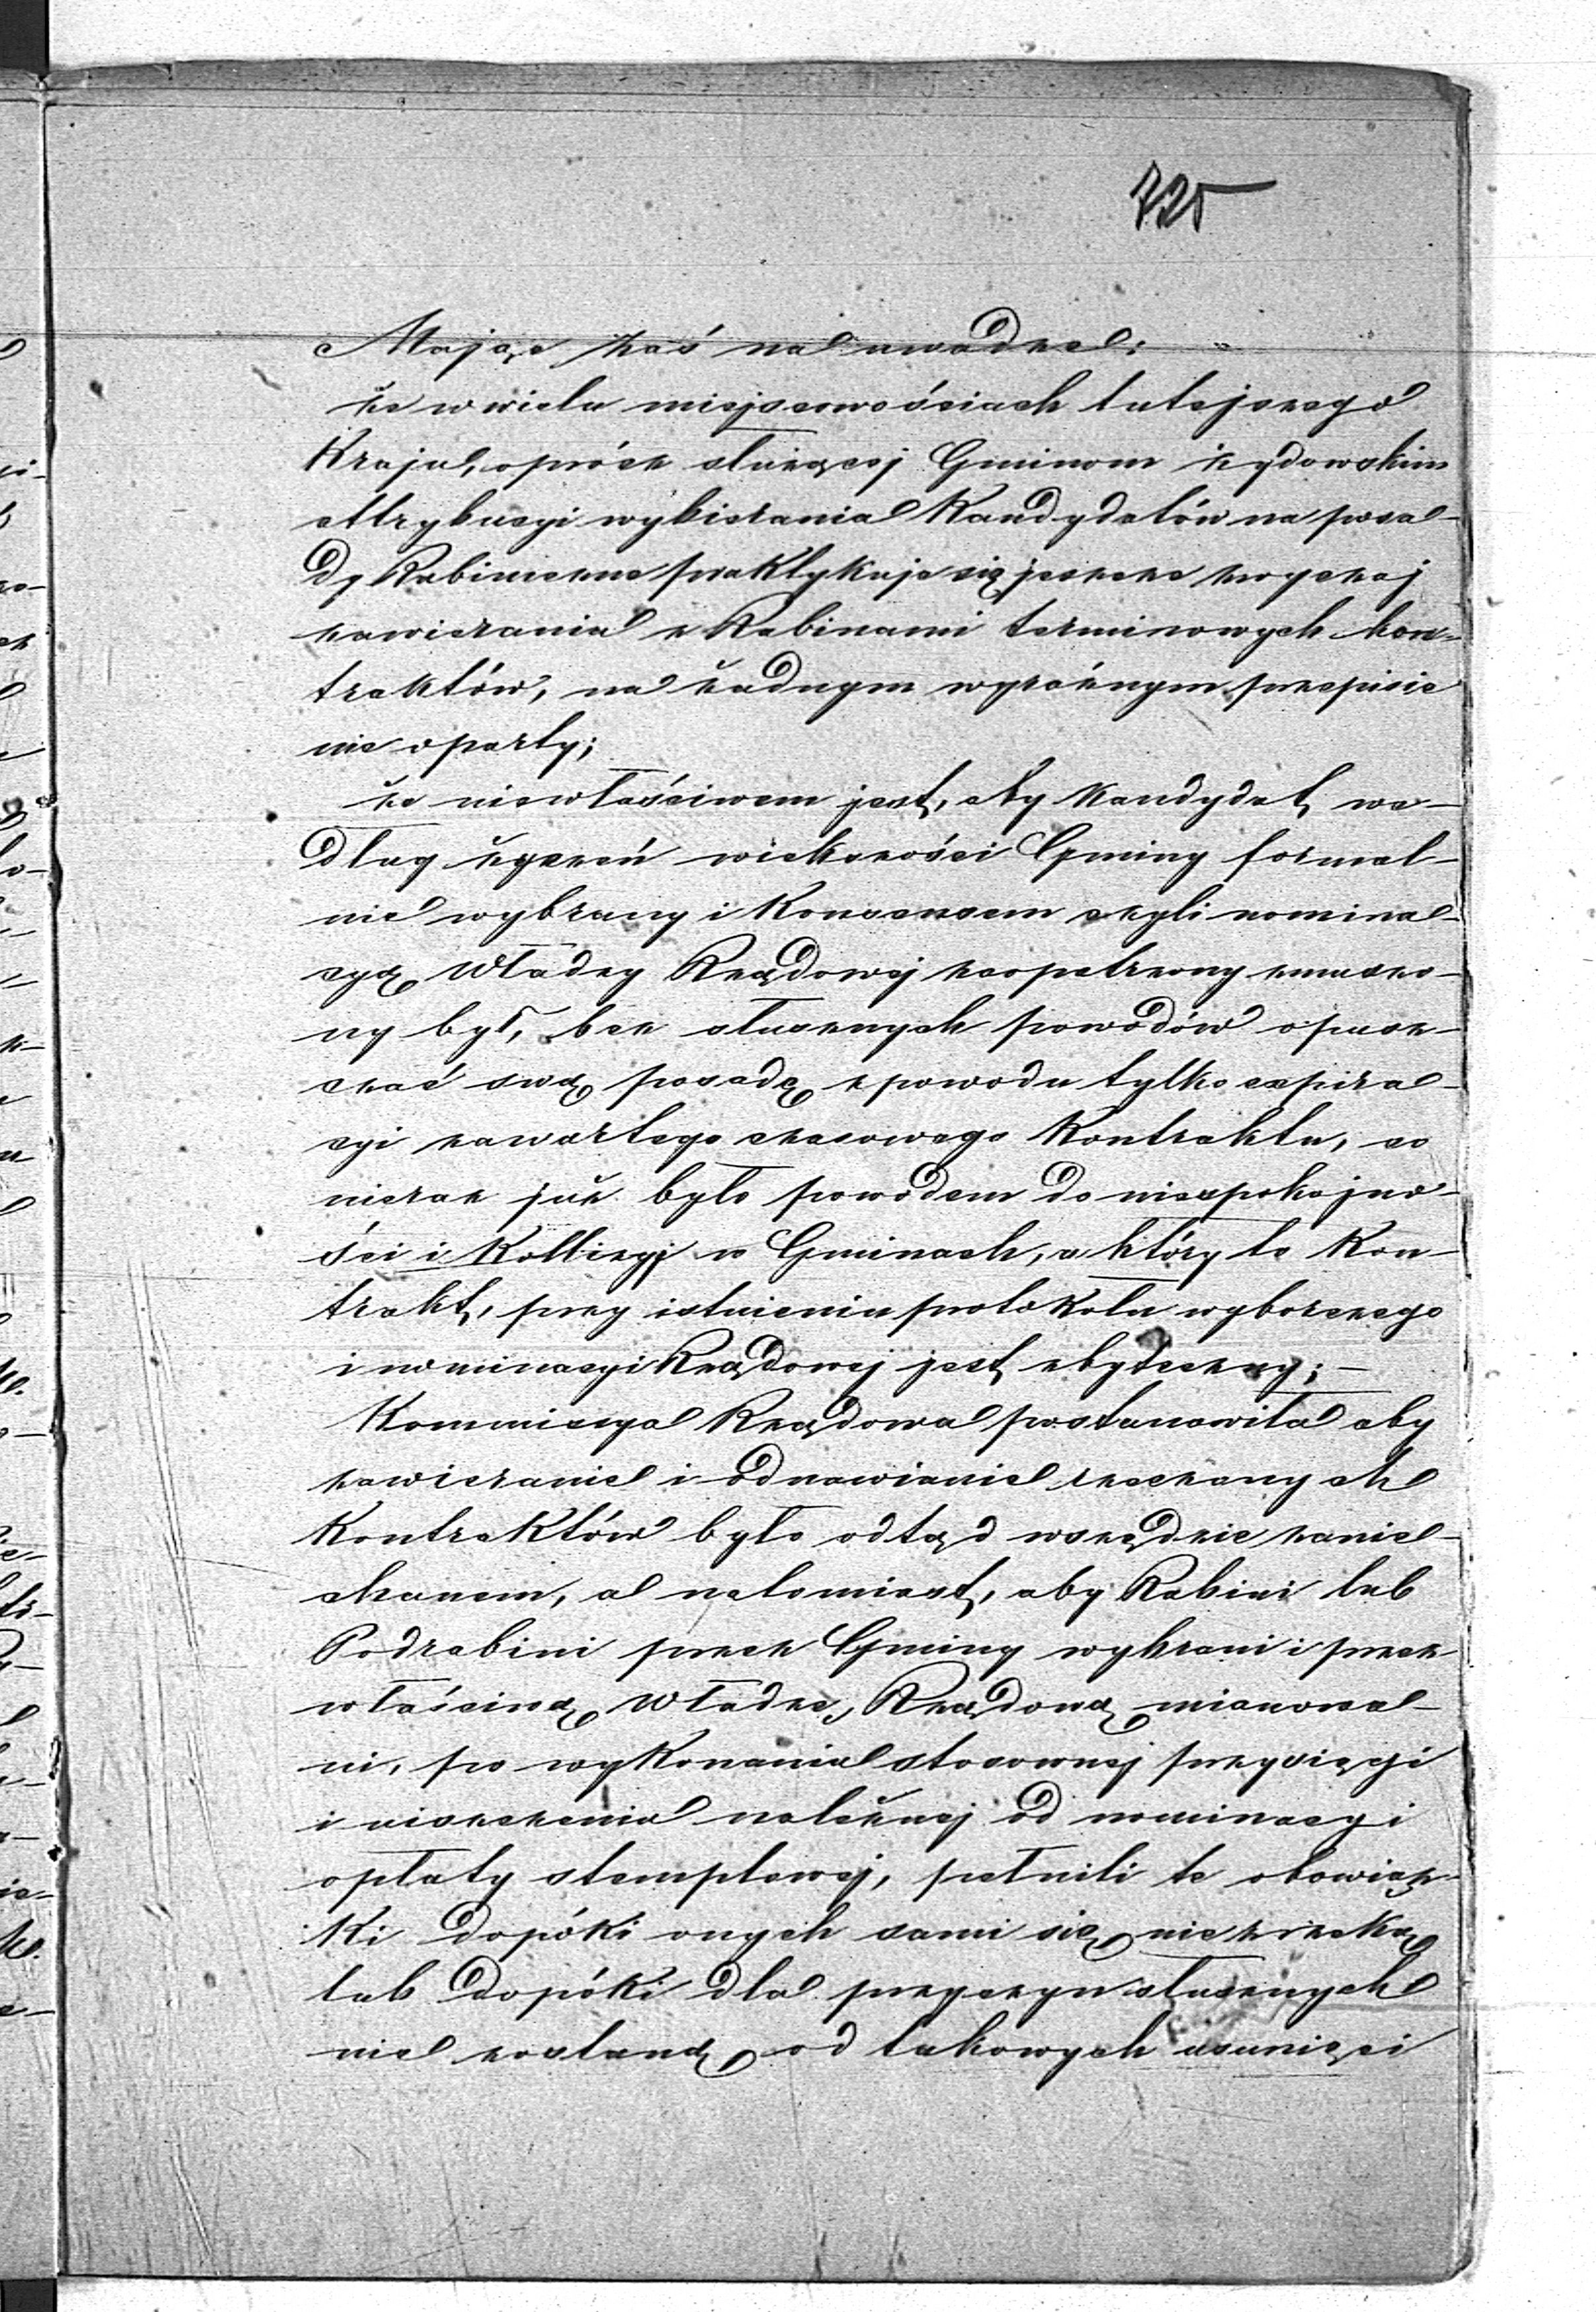 725
Mając zaś na uwadze:
że w wielu miejscowościach tutejszego
Kraju, oprócz służącej Gminom żydowskim
attrybucyi wybierania Kandydatów na posa-
dy Rabiniczne praktykuje się jeszcze zwyczaj
zawierania z Rabinami terminowych kon-
traktów, na żadnym wyraźnym przepisie
nie oparty;
że niewłaściwem jest, aby Kandydat we-
dług życzeń większości Gminy formal-
nie wybrany i Konsensem czyli nomina-
cyą Władzy Rządowej zaopatrzony zmuszo-
ny był, bez słusznych powodów opusz-
czać swą posadę z powodu tylko expira-
cyi zawartego czasowego Kontraktu, co
nieraz już było powodem do niespokojno-
ści i Kollizyj w Gminach, a który to Kon-
trakt, przy istnieniu protokołu wyborczego
i nominacyi Rządowej jest zbyteczny; –
Kommissya Rządowa postanowiła aby
zawieranie i odnawianie rzeczonych
Kontraktów było odtąd wszędzie zanie-
chanem, a natomiast, aby Rabini lub
Podrabini przez Gminy wybrani i przez
właściwą Władzę Rządową mianowa-
ni, po wykonaniu stosownej przysięgi
i uiszczeniu należnej od nominacyi
opłaty stemplowej, pełnili te obowiąz-
ki dopóki onych sami się nie zrzeką
lub dopóki dla przyczyn słusznych
nie zostaną od takowych usunięci